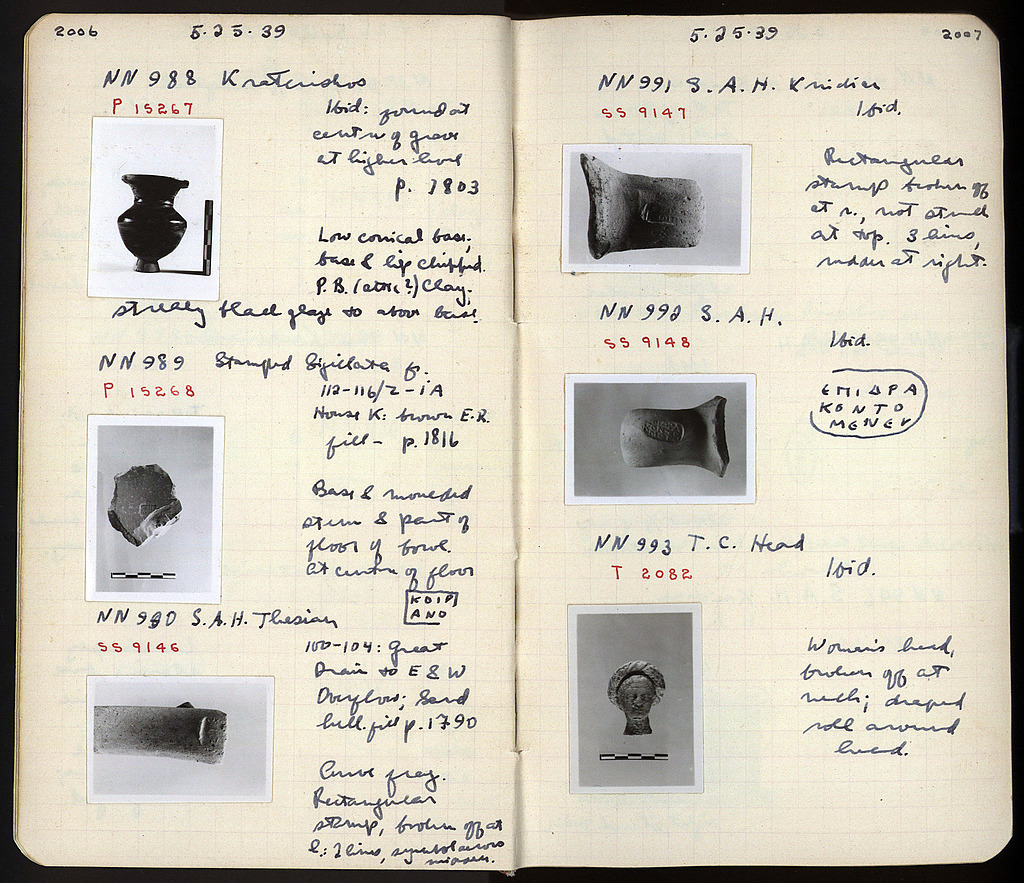 2006
5·25·39
NN 988 Krateriskos
P 15267
Ibid: found at
centre of grave
at higher level
p. 1803
Low conical base,
base & lip chipped.
P.B. (attic?) Clay;
streaky black glaze to above base.
NN 989 Stamped Sigillata fr.
P 15268
112-116/Z-iA
House K: brown E.R.
fill - p. 1816
Base & moulded
stem & part of
floor of bowl.
At centre of floor
ΚΟΙΡ
ΑΝΟ
NN 990 S.A.H. Thasian
SS 9146
100-104: Great
Drain to E & W
Overflow; Sand
hell. fill p. 1790
Curve frag.
Rectangular
stamp, broken off at
l.: 2 lines, symbol across
2007
5·25·39
NN 991 S. A. H. Knidian
SS 9147
Ibid.
Rectangular
stamp broken off
at r., not struck
at top. 3 lines,
rudder at right.
NN 992 S. A. H.
SS 9148
Ibid.
ΕΠΙΔΡΑ
ΚΟΝΤΟ
ΜΕΝΕΚ
NN 993 T. C. Head
T 2082
Ibid.
Woman's head,
broken off at
neck; draped
roll around
head.